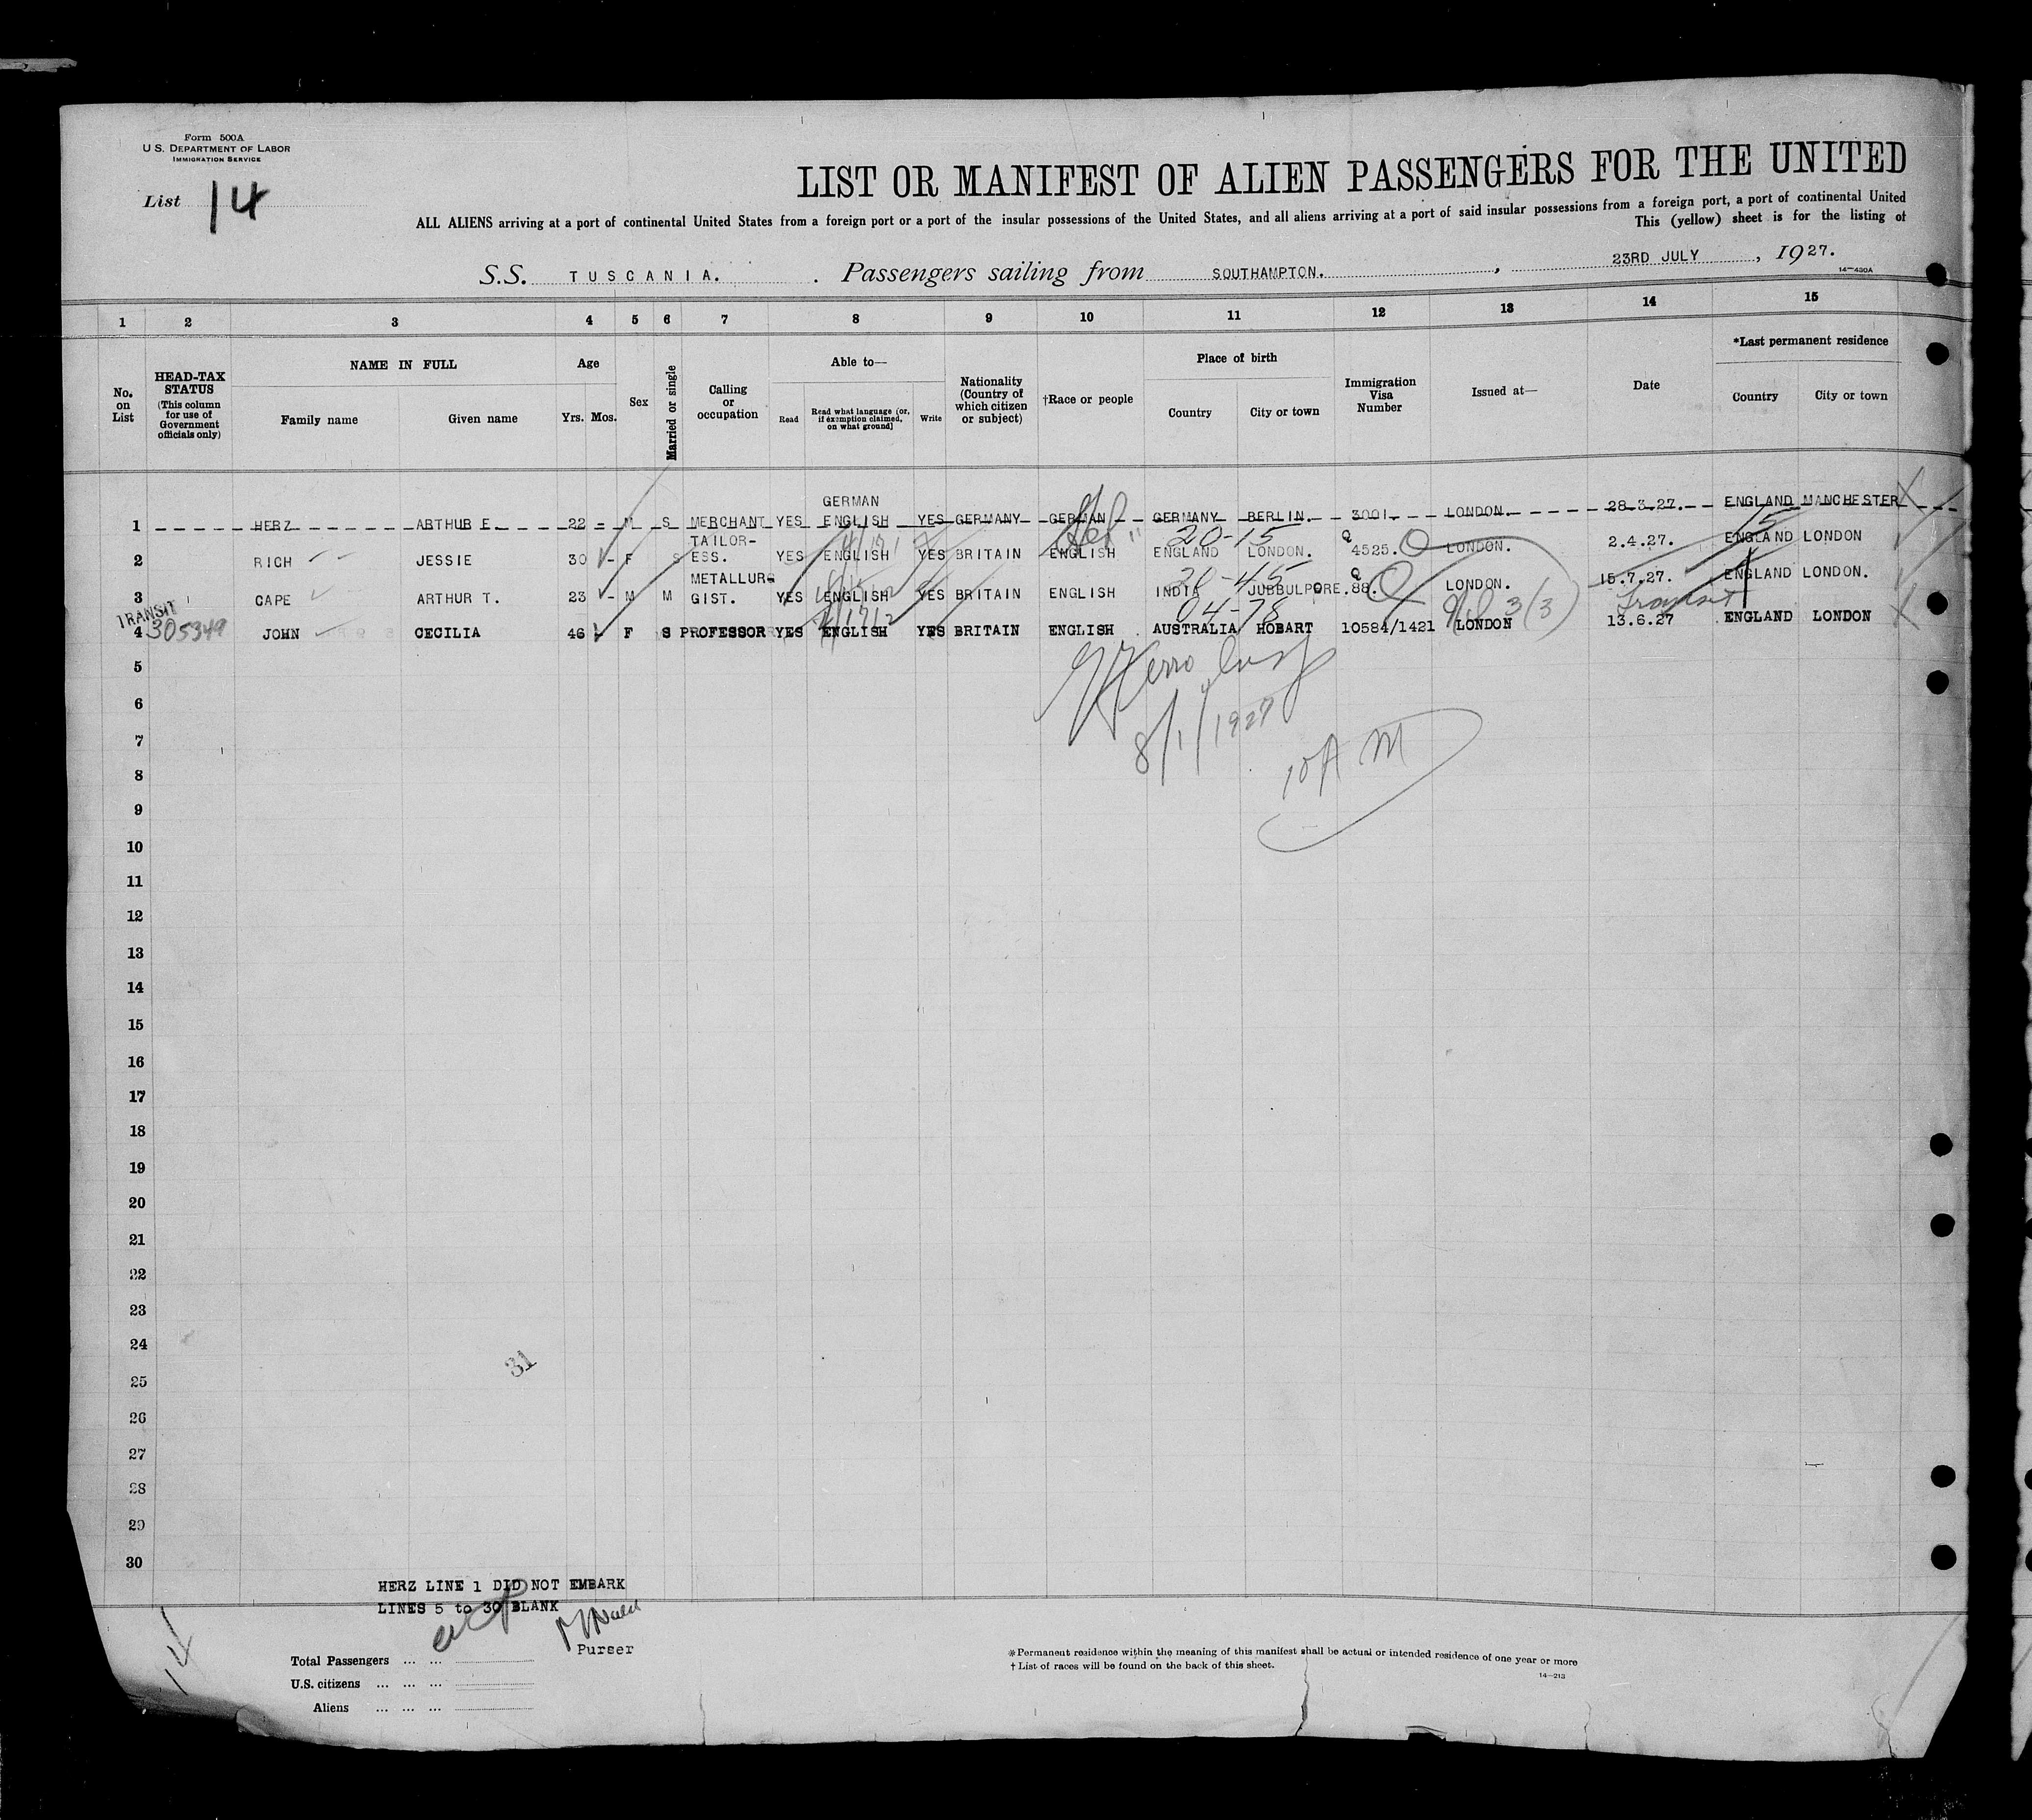 Form 500A
U.S. DEPARTMENT OF LABOR
IMMIGRATION SERVICE
List 14
LIST OR MANIFEST OF ALIEN PASSENGERS FOR THE UNITED
ALL ALIENS arriving at a port of continental United States from a foreign port or a port of the insular possessions of the United States, and all aliens arriving at a port of said insular possessions from a foreign port, a port of continental United
This (yellow) sheet is for the listing of
S.S. TUSCANIA. . Passengers sailing from SOUTHAMPTON. , 23RD JULY , 1927.
14-430A
1 2 3 4 5 6 7 8 9 10 11 12 13 14 15
No. on List
HEAD-TAX STATUS
(This column for use of Government officials only)
NAME IN FULL
Family name Given name
Age
Yrs. Mos.
Sex
Married or single
Calling or occupation
Able to—
Read
Read what language (or, if exemption claimed, on what ground)
Write
Nationality (Country of which citizen or subject)
†Race or people
Place of birth
Country City or town
Immigration Visa Number
Issued at—
Date
*Last permanent residence
Country City or town
GERMAN
1 HERZ ARTHUR E. 22 - M S MERCHANT YES ENGLISH YES GERMANY GERMAN GERMANY BERLIN. 3001. LONDON. 28.3.27. ENGLAND MANCHESTER
TAILOR- 20-15 15
2 RICH JESSIE 30 - F S ESS. YES ENGLISH YES BRITAIN ENGLISH ENGLAND LONDON. Q 4525. LONDON. 2.4.27. ENGLAND LONDON
METALLUR- 20-45
3 CAPE ARTHUR T. 23 - M M GIST. YES ENGLISH YES BRITAIN ENGLISH INDIA JUBBULPORE. Q 88. LONDON. 15.7.27. ENGLAND LONDON.
TRANSIT 04-78 3(3) Transit
4 305349 JOHN CECILIA 46 F S PROFESSOR YES ENGLISH YES BRITAIN ENGLISH AUSTRALIA HOBART 10584/1421 LONDON 13.6.27 ENGLAND LONDON
5
6
8/1/1927
7
10 A M
8
9
10
11
12
13
14
15
16
17
18
19
20
21
22
23
24
31
25
26
27
28
29
30
HERZ LINE 1 DID NOT EMBARK
LINES 5 to 30 BLANK
Purser
Total Passengers ... ...
U.S. citizens ... ... ...
Aliens ... ... ...
*Permanent residence within the meaning of this manifest shall be actual or intended residence of one year or more
† List of races will be found on the back of this sheet.
14-213
14